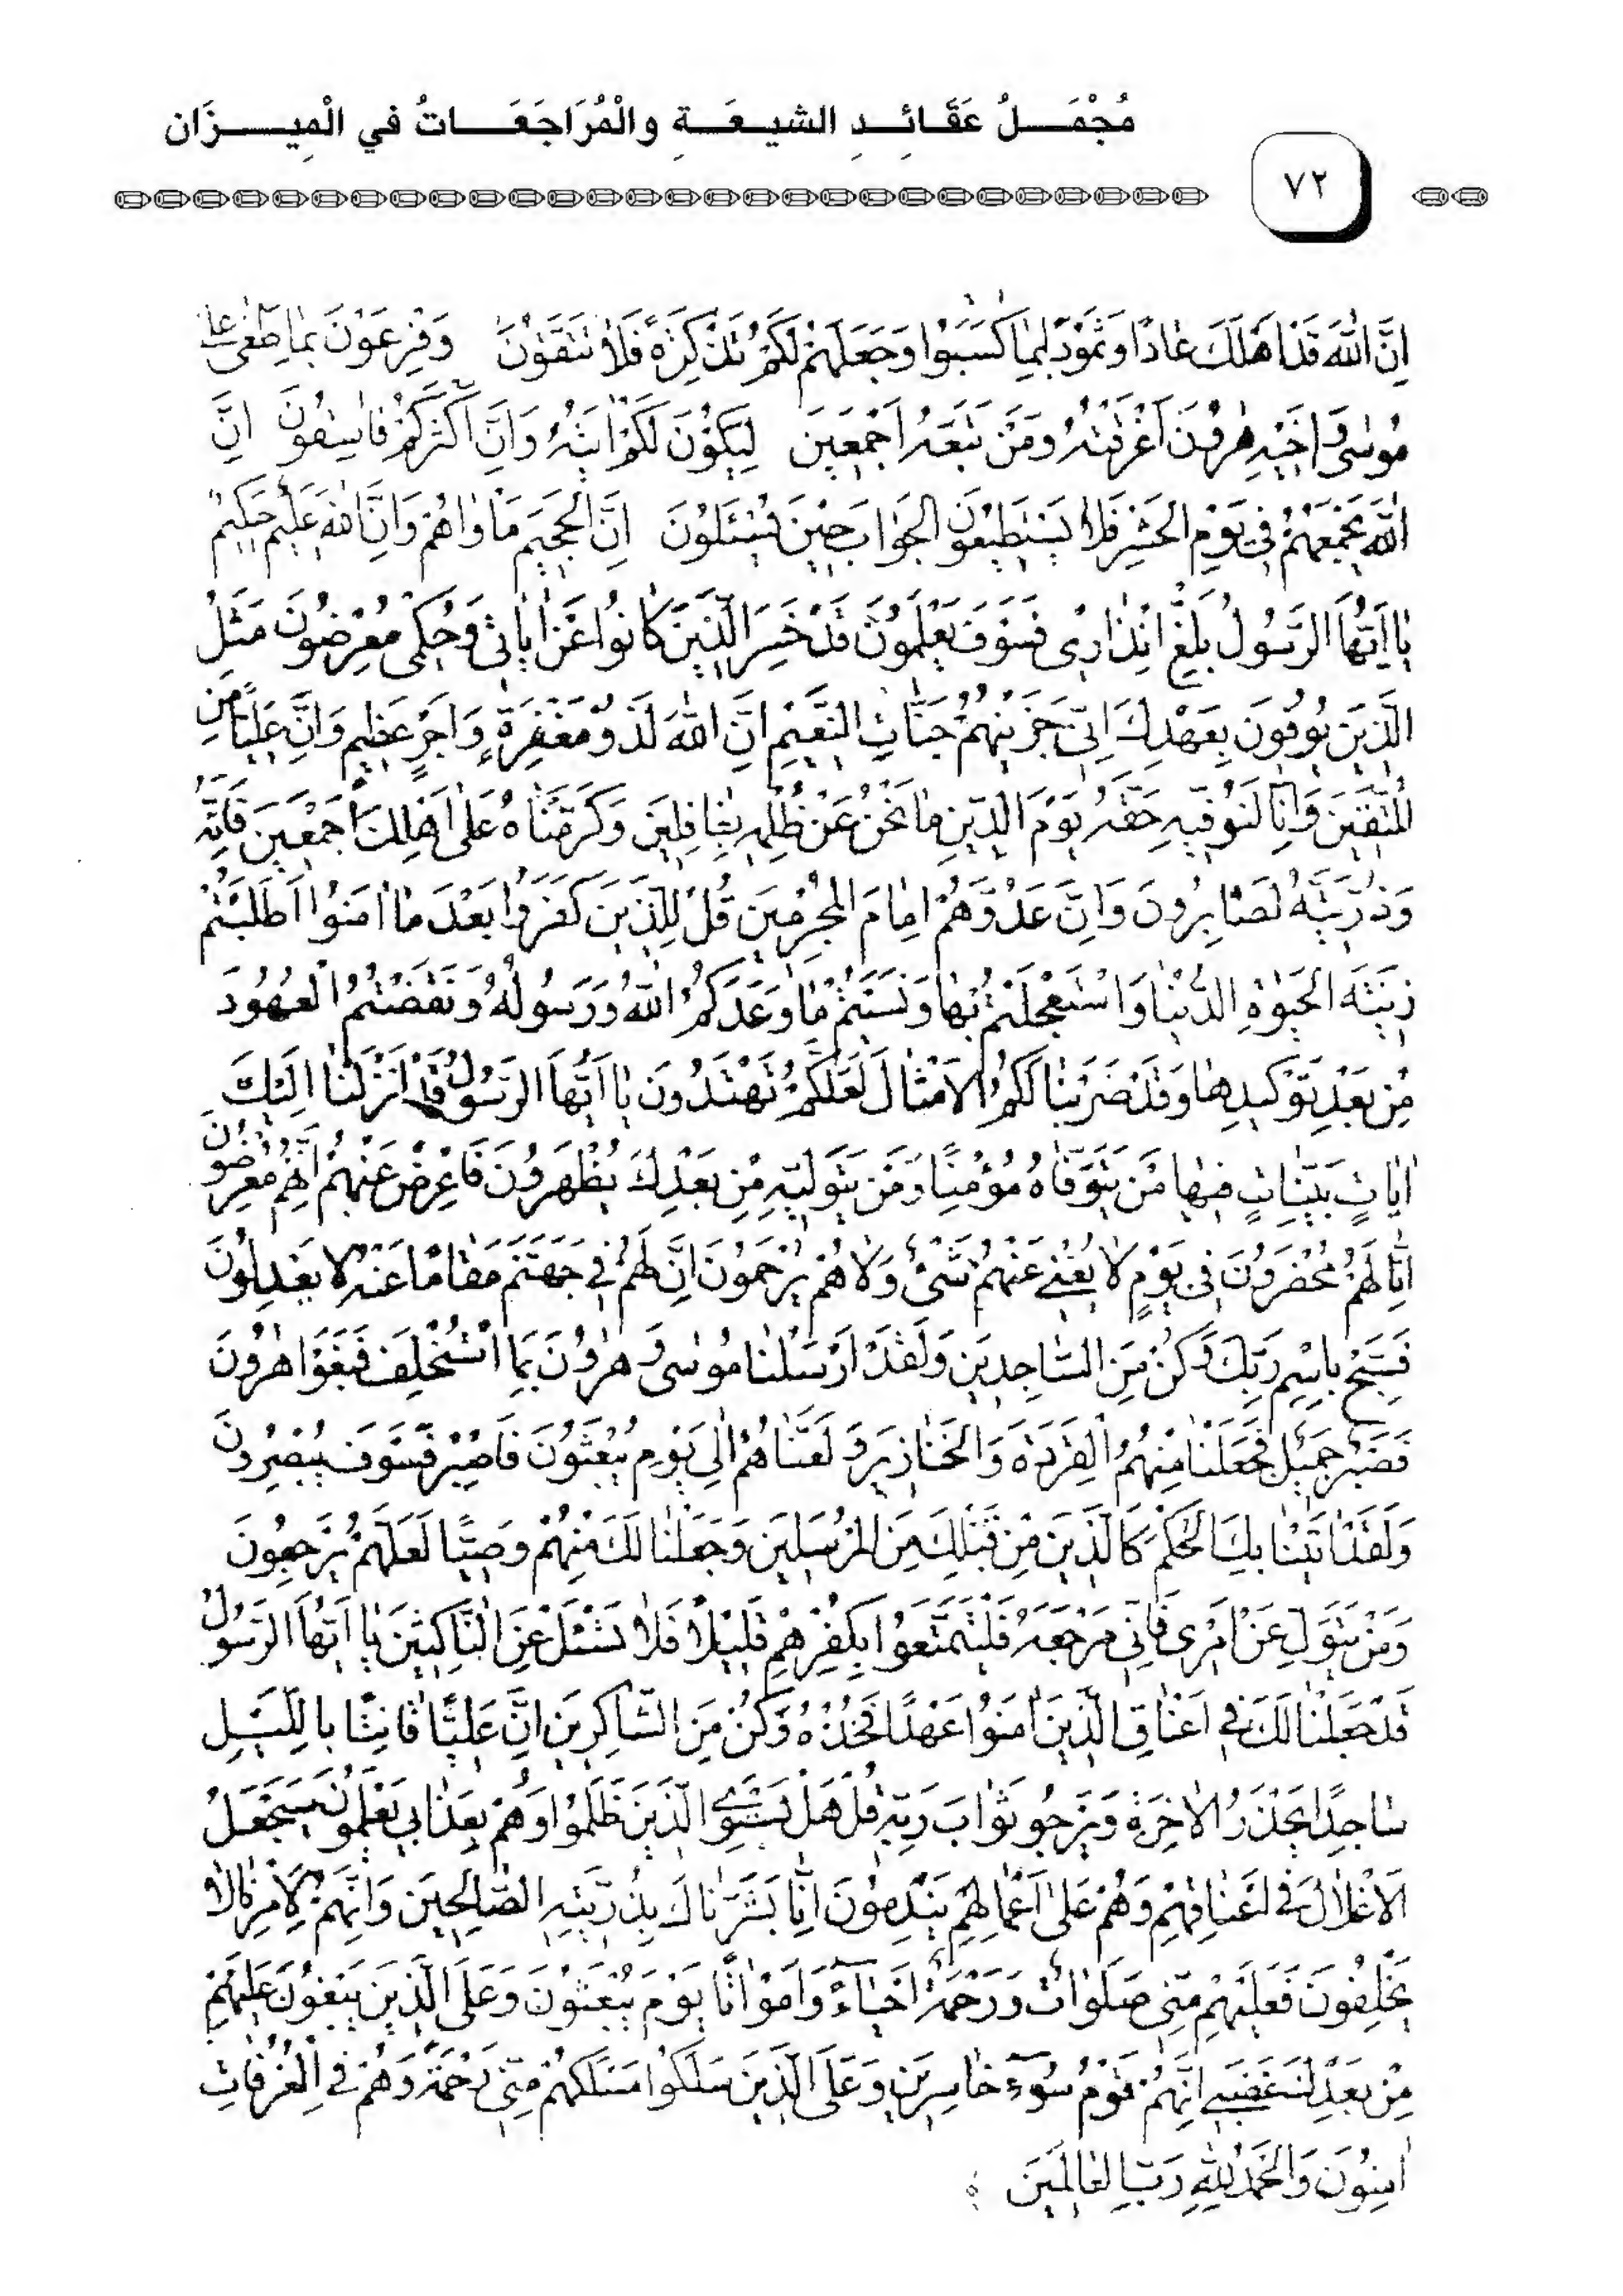 مُجْمَلُ عَقَائِدِ الشيعَةِ والْمُرَاجَعَاتُ في الْمِيزَان
٧٢
اِنَّ اللّٰهَ قَدْ اَهْلَكَ عَادًا وَثَمُودَ بِمَا كَسَبُوا وَجَعَلَهُمْ لَكُمْ تَذْكِرَةً فَلَا تَتَّقُونَ وَفِرْعَوْنَ بِمَا طَغٰى عَلٰى
مُوسٰى وَاَخِيهِ هٰرُونَ اَغْرَقْنَاهُ وَمَنْ تَبِعَهُ اَجْمَعِينَ لِيَكُونَ لَكُمْ اٰيَتُهُ وَاِنَّ اَكْثَرَكُمْ فَاسِقُونَ اِنَّ
اللّٰهَ يَجْمَعُهُمْ فِي يَوْمِ الْحَشْرِ فَلَا يَسْتَطِيعُونَ الْجَوَابَ حِينَ يُسْئَلُونَ اِنَّ الْجَحِيمَ مَأْوَاهُمْ وَاِنَّ اللّٰهَ عَلِيمٌ حَكِيمٌ
يَا اَيُّهَا الرَّسُولُ بَلِّغْ اِنْذَارِي فَسَوْفَ يَعْلَمُونَ قَدْ خَسِرَ الَّذِينَ كَانُوا عَنْ اٰيَاتِي وَحُكْمِي مُعْرِضُونَ مَثَلُ
الَّذِينَ يُوفُونَ بِعَهْدِكَ اِنِّي جَزَيْتُهُمْ جَنَّاتِ النَّعِيمِ اِنَّ اللّٰهَ لَذُو مَغْفِرَةٍ وَاَجْرٍ عَظِيمٍ وَاِنَّ عَلِيًّا مِنَ
الْمُتَّقِينَ وَاِنَّا لَنُوَفِّيهِ حَقَّهُ يَوْمَ الدِّينِ مَا نَحْنُ عَنْ ظُلْمِهِ بِغَافِلِينَ وَكَرَّمْنَاهُ عَلٰى اَهْلِكَ اَجْمَعِينَ فَاِنَّهُ
وَذُرِّيَّتَهُ لَصَابِرُونَ وَاِنَّ عَدُوَّهُمْ اِمَامَ الْمُجْرِمِينَ قُلْ لِلَّذِينَ كَفَرُوا بَعْدَ مَا اٰمَنُوا اَطَلَبْتُمْ
زِينَةَ الْحَيٰوةِ الدُّنْيَا وَاسْتَعْجَلْتُمْ بِهَا وَنَسِيتُمْ مَا وَعَدَكُمُ اللّٰهُ وَرَسُولُهُ وَنَقَضْتُمُ الْعُهُودَ
مِنْ بَعْدِ تَوْكِيدِهَا وَقَدْ ضَرَبْنَا لَكُمُ الْاَمْثَالَ لَعَلَّكُمْ تَهْتَدُونَ يَا اَيُّهَا الرَّسُولُ قَدْ اَنْزَلْنَا اِلَيْكَ
اٰيَاتٍ بَيِّنَاتٍ فِيهَا مَنْ يَتَوَفَّاهُ مُؤْمِنًا وَمَنْ يَتَوَلِّيهِ مِنْ بَعْدِكَ يُظْهَرُونَ فَاَعْرِضْ عَنْهُمْ اِنَّهُمْ مُعْرِضُونَ
اِنَّا لَهُمْ مُحْضَرُونَ فِي يَوْمٍ لَا يُغْنِي عَنْهُمْ شَيْءٌ وَلَا هُمْ يُرْحَمُونَ اِنَّ لَهُمْ فِي جَهَنَّمَ مَقَامًا عَنْهُ لَا يَعْدِلُونَ
فَسَبِّحْ بِاسْمِ رَبِّكَ وَكُنْ مِنَ السَّاجِدِينَ وَلَقَدْ اَرْسَلْنَا مُوسٰى وَهٰرُونَ بِمَا اسْتُخْلِفَ فَبَغَوْا هٰرُونَ
فَصَبْرٌ جَمِيلٌ فَجَعَلْنَا مِنْهُمُ الْقِرَدَةَ وَالْخَنَازِيرَ وَلَعَنَّاهُمْ اِلٰى يَوْمِ يُبْعَثُونَ فَاصْبِرْ فَسَوْفَ يُبْصِرُونَ
وَلَقَدْ اٰتَيْنَا بِكَ الْحُكْمَ كَالَّذِينَ مِنْ قَبْلِكَ مِنَ الْمُرْسَلِينَ وَجَعَلْنَا لَكَ مِنْهُمْ وَصِيًّا لَعَلَّهُمْ يَرْجِعُونَ
وَمَنْ يَتَوَلَّ عَنْ اَمْرِي فَاِنِّي مَرْجَعُهُ فَلْيَتَمَتَّعُوا بِكُفْرِهِمْ قَلِيلًا فَلَا تَسْئَلْ عَنِ النَّاكِثِينَ يَا اَيُّهَا الرَّسُولُ
قَدْ جَعَلْنَا لَكَ فِي اَعْنَاقِ الَّذِينَ اٰمَنُوا عَهْدًا فَخُذْهُ وَكُنْ مِنَ الشَّاكِرِينَ اِنَّ عَلِيًّا قَانِتًا بِاللَّيْلِ
سَاجِدًا يَحْذَرُ الْاٰخِرَةَ وَيَرْجُو ثَوَابَ رَبِّهِ قُلْ هَلْ يَسْتَوِي الَّذِينَ ظَلَمُوا وَهُمْ بِعَذَابِي يَعْلَمُونَ سَيُجْعَلُ
الْاَغْلَالُ فِي اَعْنَاقِهِمْ وَهُمْ عَلٰى اَعْمَالِهِمْ يَنْدِمُونَ اِنَّا بَشَّرْنَاكَ بِذُرِّيَّتِهِ الصَّالِحِينَ وَاِنَّهُمْ لِاَمْرِنَا لَا
يَخْلِفُونَ فَعَلَيْهِمْ مِنِّي صَلَوَاتٌ وَرَحْمَةٌ اَحْيَاءً وَاَمْوَاتًا يَوْمَ يُبْعَثُونَ وَعَلَى الَّذِينَ يَبْغُونَ عَلَيْهِمْ
مِنْ بَعْدِكَ غَضَبِي اِنَّهُمْ قَوْمُ سُوءٍ خَاسِرِينَ وَعَلَى الَّذِينَ سَلَكُوا مَسْلَكَهُمْ مِنِّي رَحْمَةٌ وَهُمْ فِي الْغُرُفَاتِ
اٰمِنُونَ وَالْحَمْدُ لِلّٰهِ رَبِّ الْعَالَمِينَ